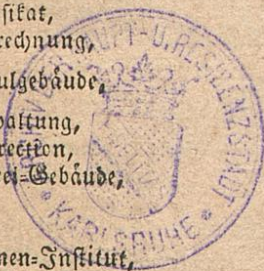 sikat,
rechnung,
ulgebäude,
waltung,
rection,
rei=Gebäude,
men=Institut,
HAUPT-U. RESIDENZSTADT
* KARLSRUHE *